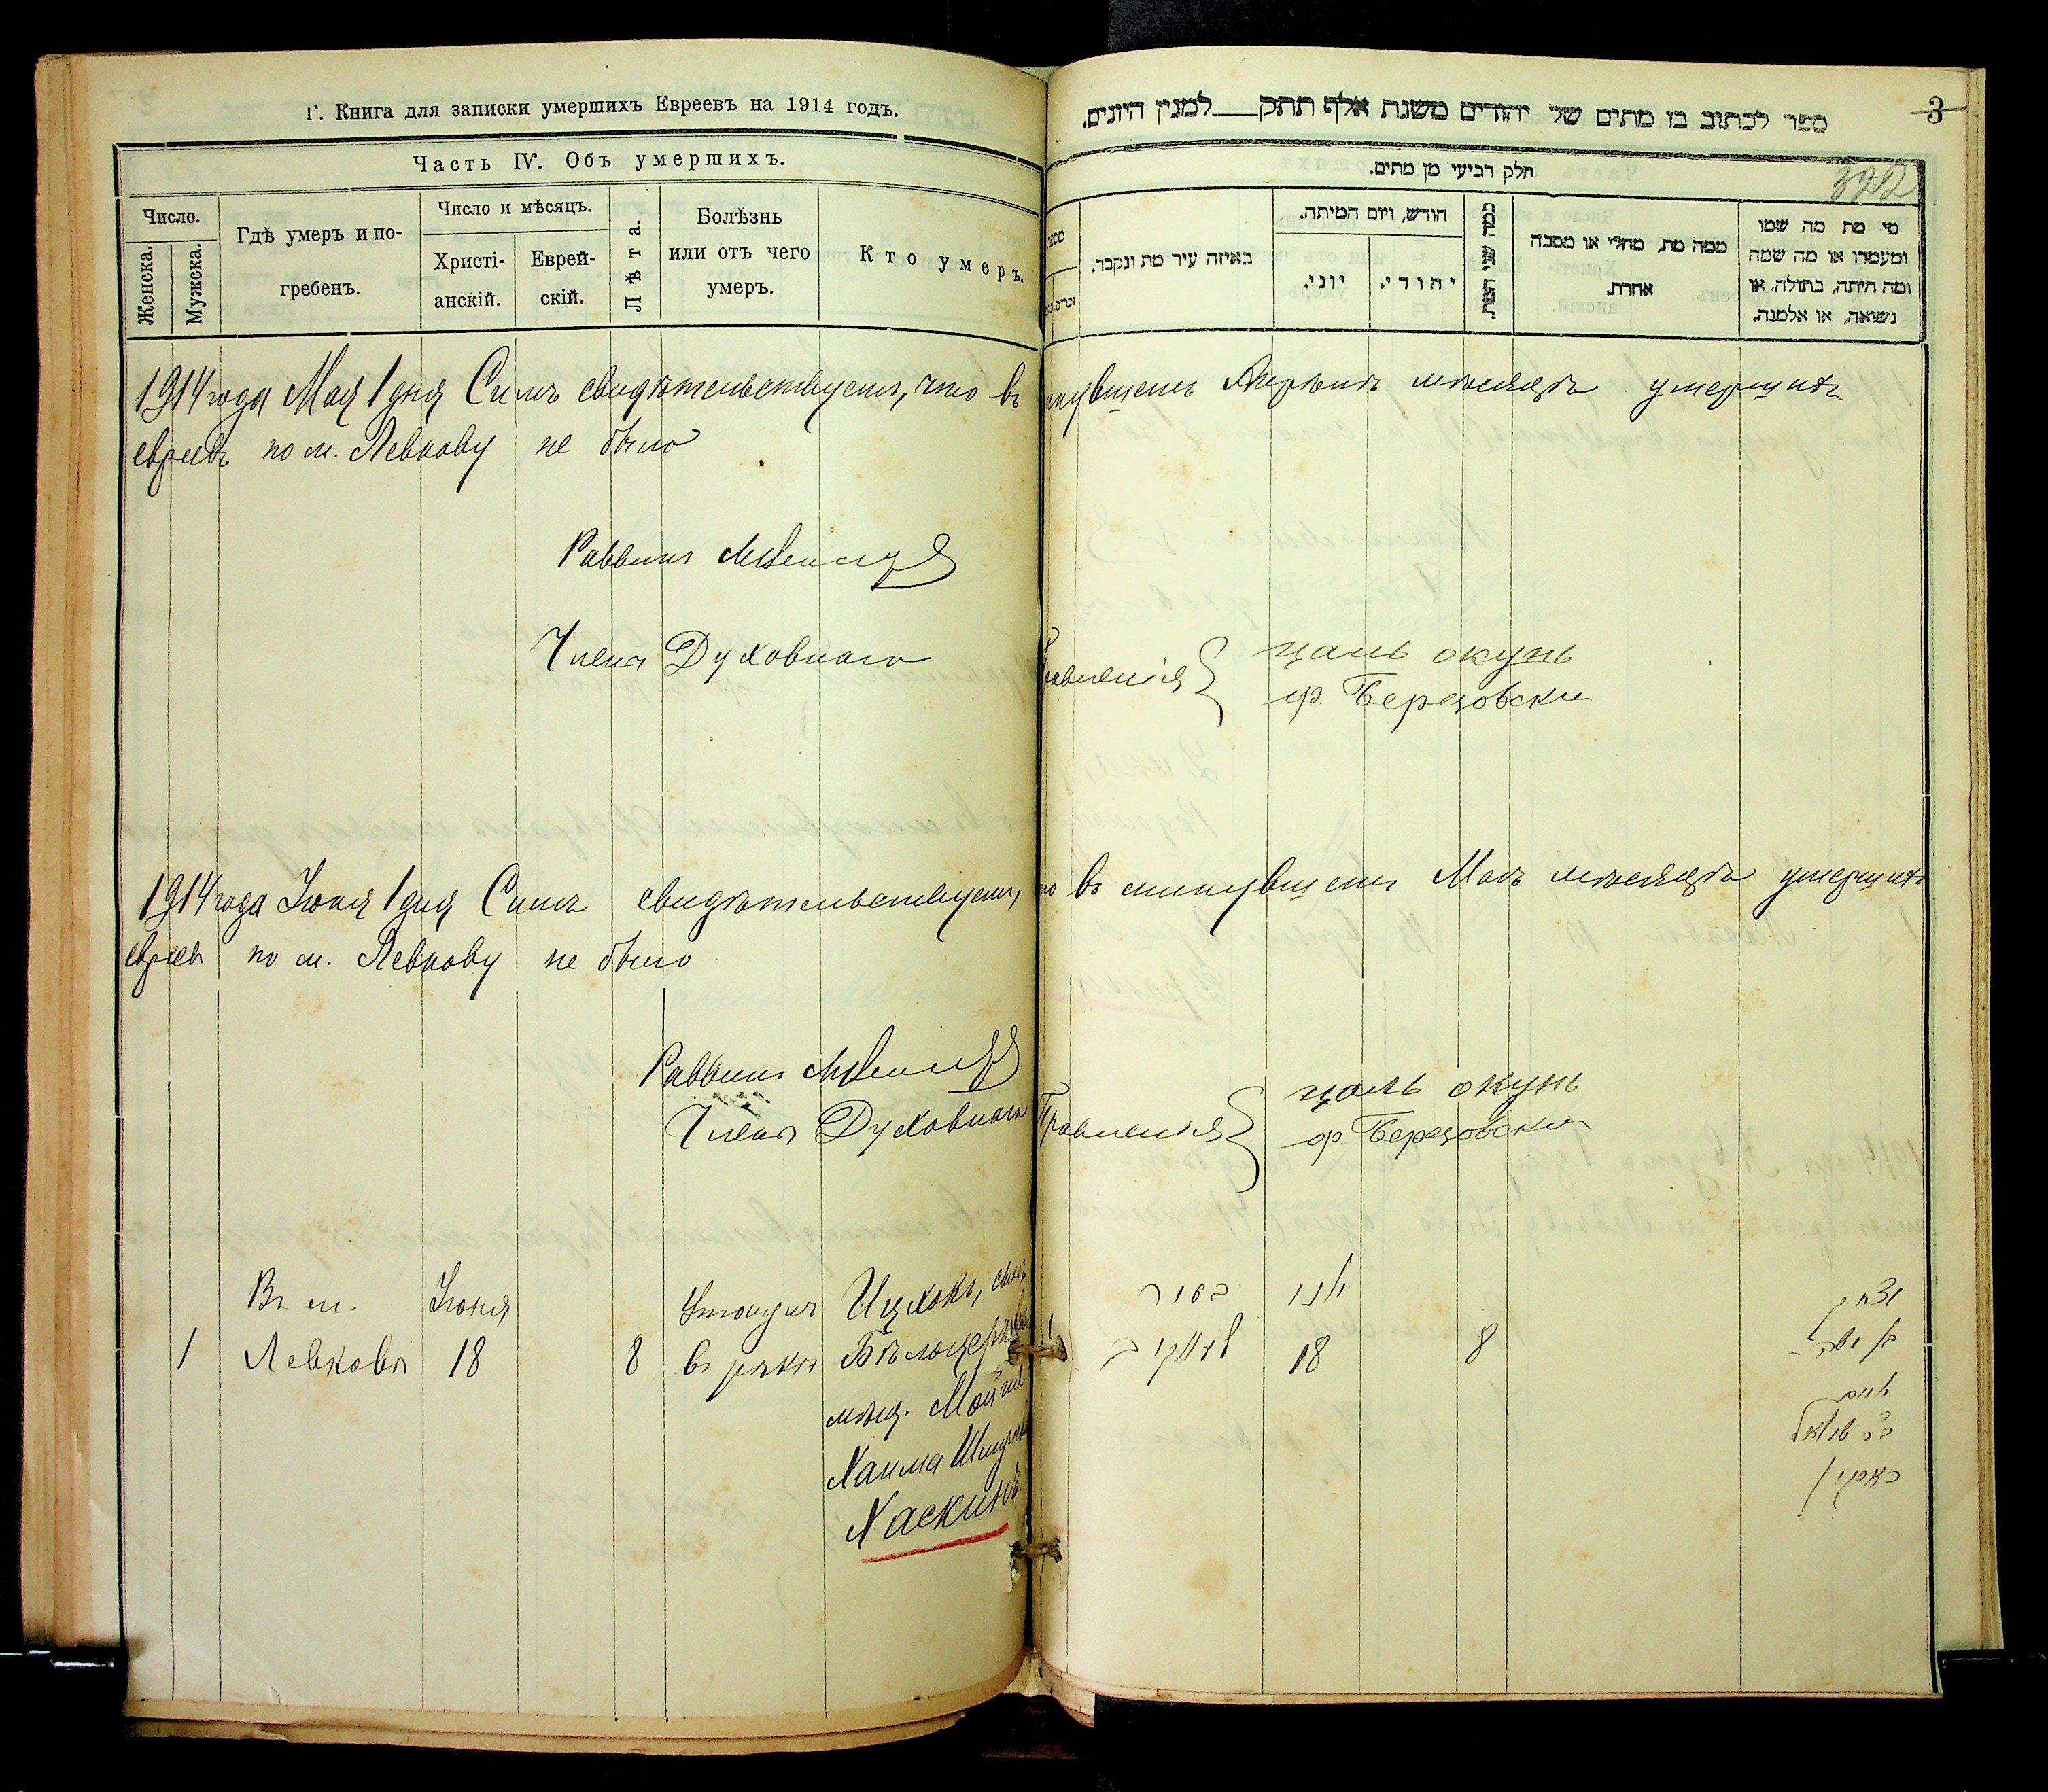 Г. Книга для записки умершихъ Евреевъ на 1914 годъ.
Часть IV. Объ умершихъ.
Число.
Женска.
Мужска.
Гдѣ умеръ и по-
гребенъ.
Число и мѣсяцъ.
Христі-
анскій.
Еврей-
скій.
Лѣта.
Болѣзнь
или отъ чего
умеръ.
Кто умеръ.
ספר לכתוב בו מתים של יהודים משנת אלף תתק למנין היונים.
3
322
חלק רביעי מן מתים.
באיזה עיר מת ונקבר.
חודש, ויום המיתה.
יוני.
יהודי.
כמה שני המת.
ממה מת, מחלי או מסבה
אחרת.
מי מת מה שמו
ומעמדו או מה שמה
ומה היתה, בתולה, או
נשואה, או אלמנה.
1914 года Мая 1 дня Симъ свидѣтельствуемъ, что въ минувшемъ Апрѣлѣ мѣсяцѣ умершихъ
евреевъ по м. Левкову не было
Раввинъ
Члены Духовнаго Правленія } цаль окунь
ф. Березовски
1914 года Июня 1 дня Симъ свидѣтельствуемъ, что въ минувшемъ Маѣ мѣсяцѣ умершихъ
евреевъ по м. Левкову не было
Раввинъ
Члены Духовнаго Правленія } цаль окунь
ф. Березовски
Въ м. Июня Утонулъ Ицхокъ, сынъ
1 Левковѣ 18 8 въ рѣкѣ Бѣлоцерков
мѣщ.
Хаима
Хаскинъ.
1 18 8
יצחק
חיים